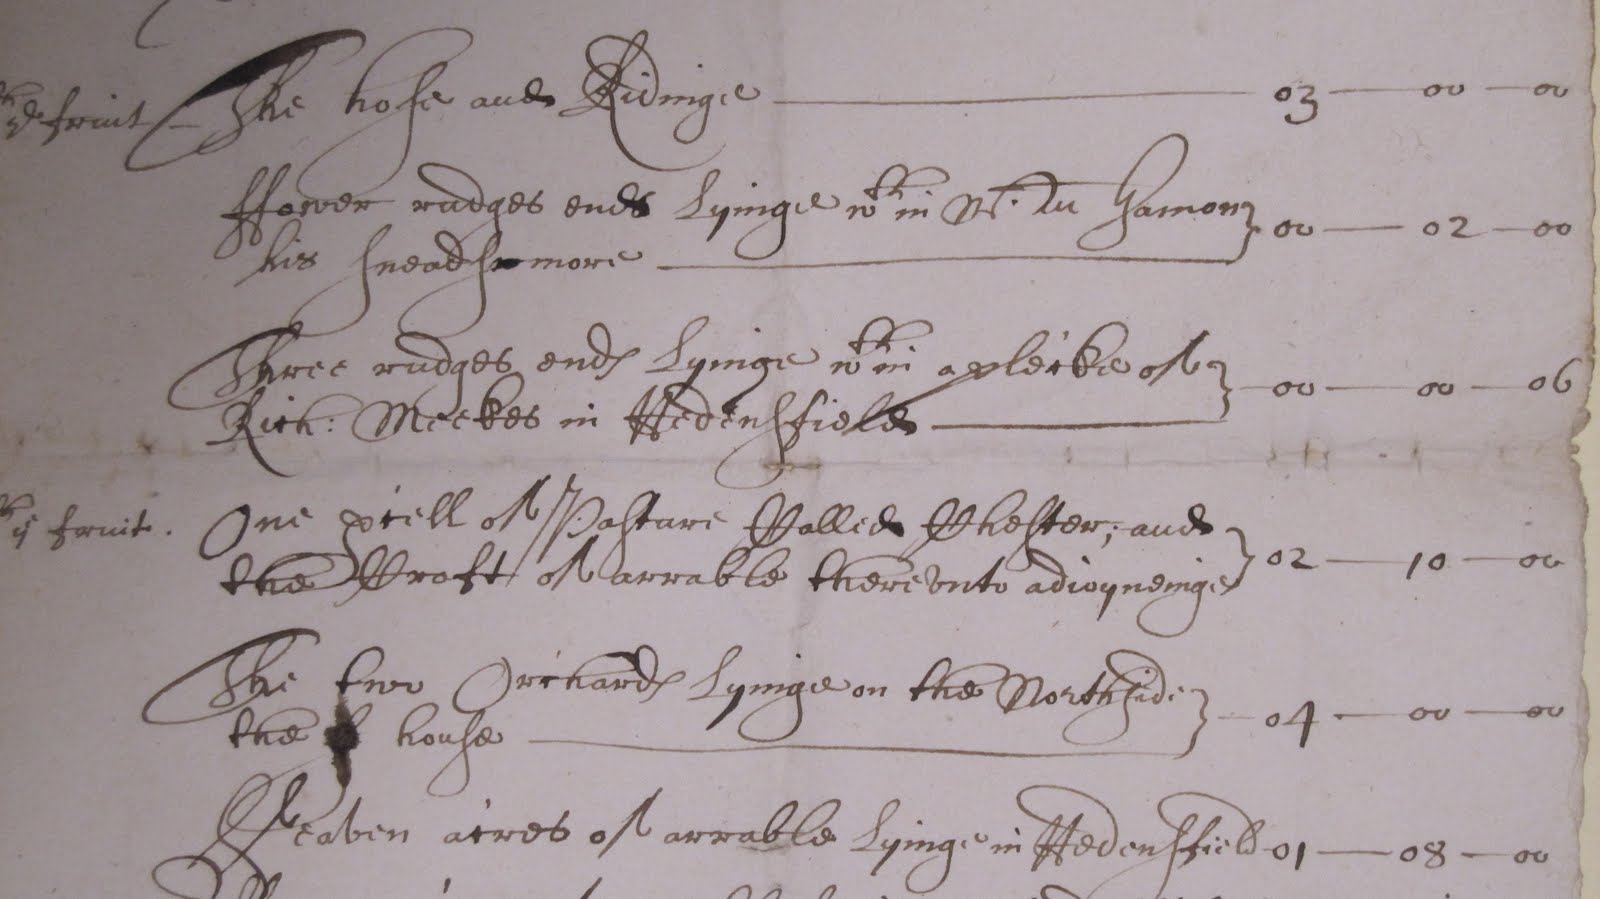 fruit The hose and Ridinge 03 — 00 — 00
ffower rudges ends Lyinge wth in Mr. Wm Hamon
his sneadsmore 00 — 02 — 00
Three rudges ends Lyinge wth in a plecke of
Rich: Meekes in Hedensfield 00 — 00 — 06
fruit. One pcell of Pasture Called Chester; and
the Croft of arrable therevnto adioyneinge 02 — 10 — 00
The two Orchards Lyinge on the Northside
the house 04 — 00 — 00
Seaven acres of arrable Lyinge in Hedensfield 01 — 08 — 00